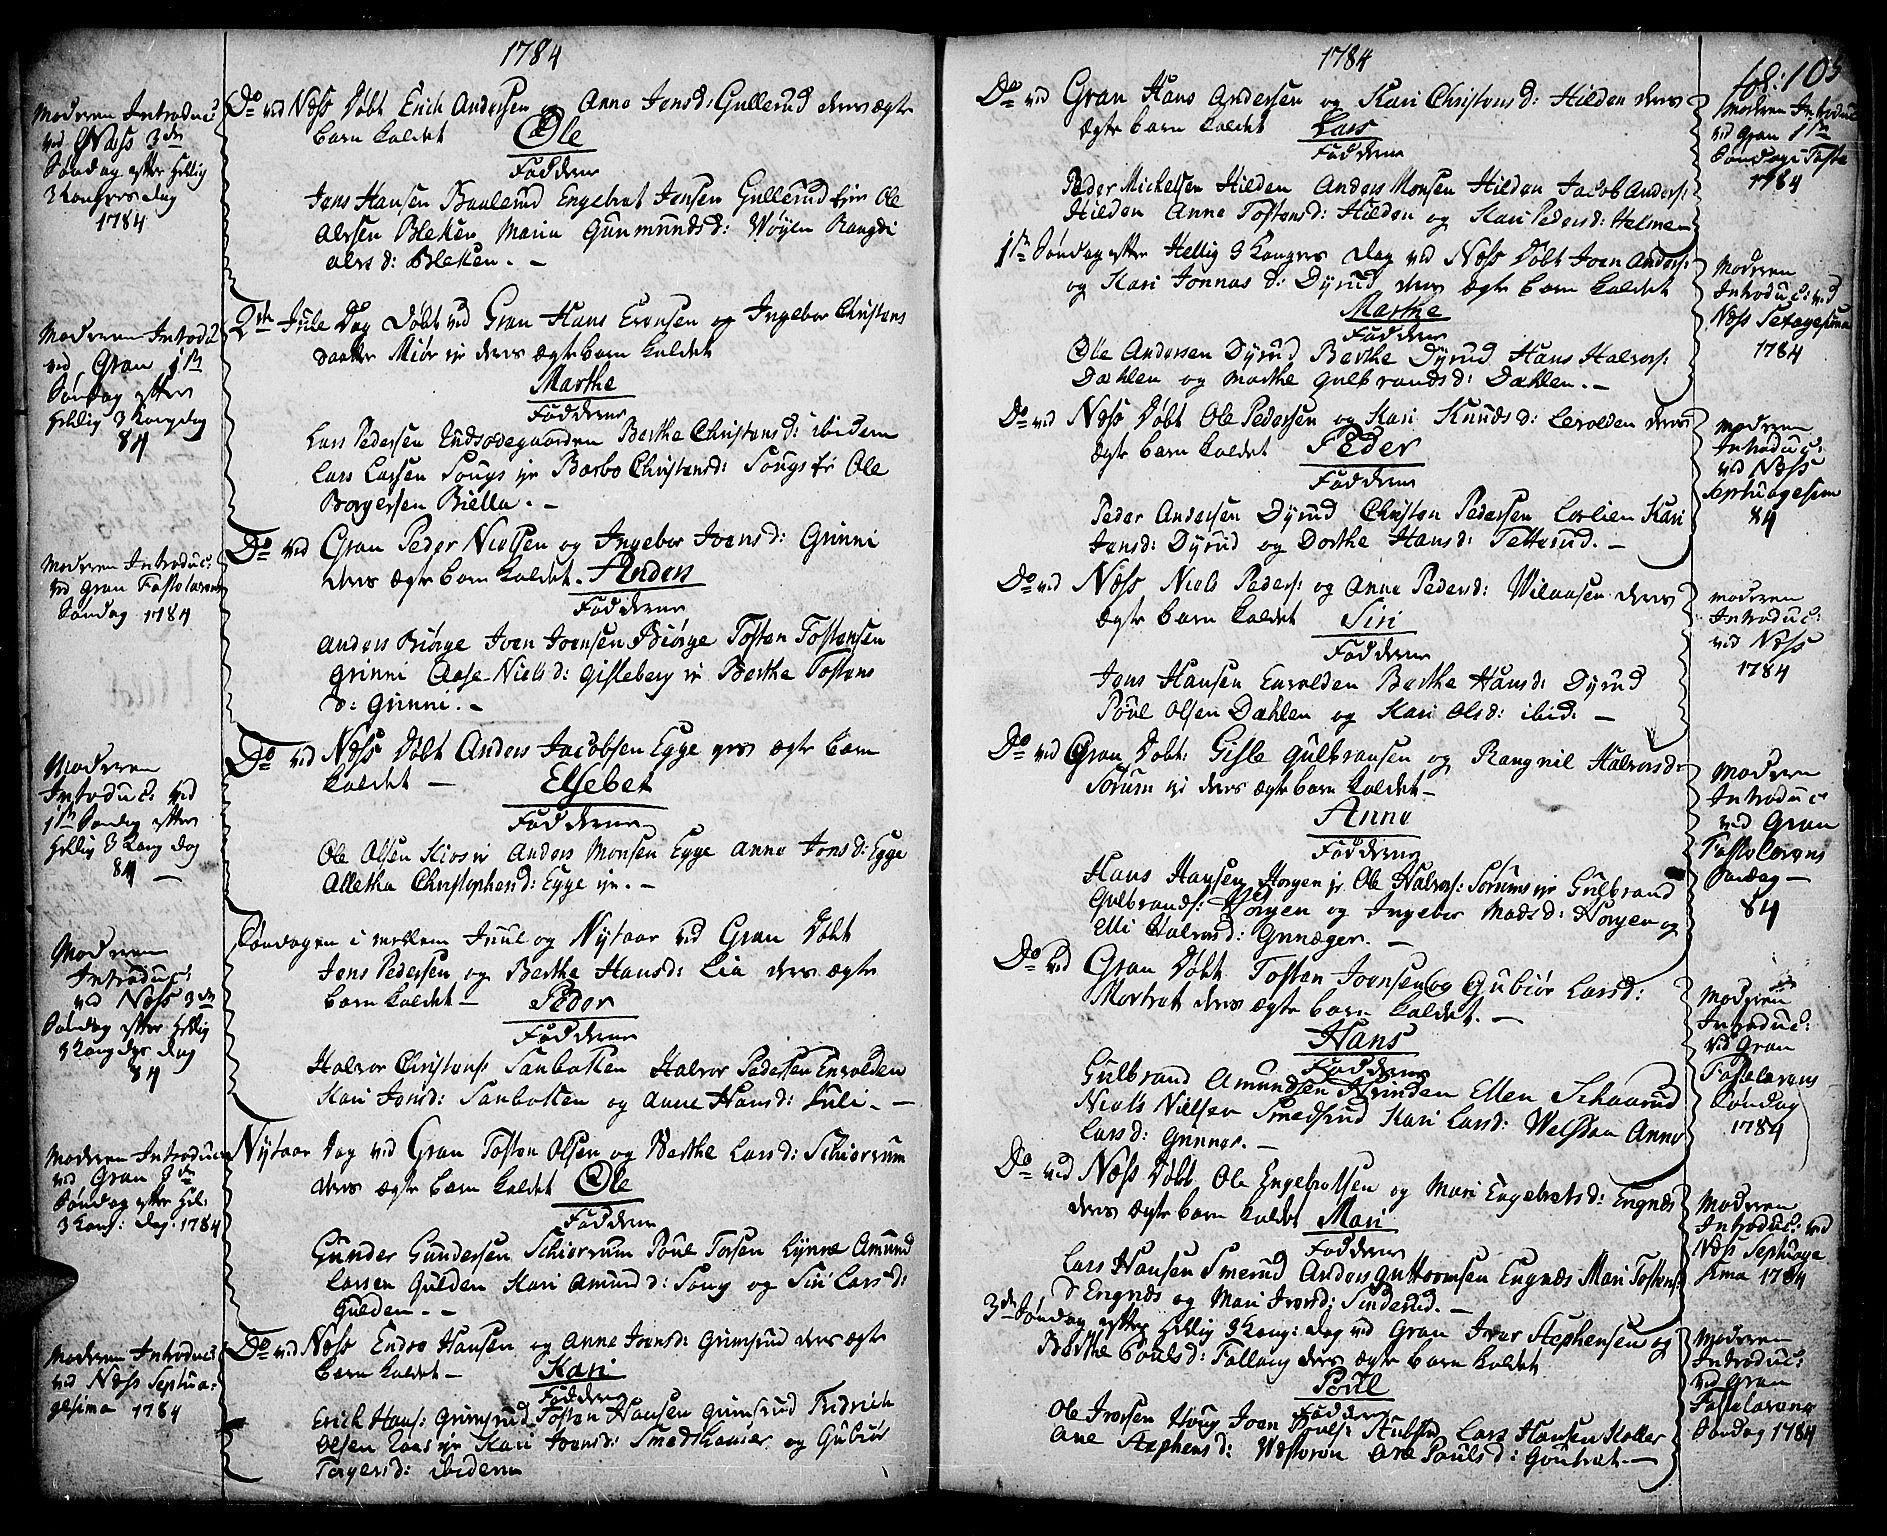 1784
Moderen Introduc:
ved Næss 3de
Søndag efter Hellig
3 Kongers dag
1784
Do ved Næss Døbt Erich Andersen og Anne Jensd: Gullerud deres ægte
barn kaldet Ole
Fadderne
Jens Hansen Engebret Jensen Gullerud Ole
Olersen Bleken Maria Gunmundsd: Røngdi
olers d: Bleken. -
Moderen Introd
ved Gran 1ste
Søndag efter
Hellig 3 Kong dag
84
2den Jule Dag Døbt ved Gran Hans Evensen og Ingebor Christens
daatter Miør deres ægte barn kaldet
Marthe
Fadderne
Lars Pedersen Berthe Christensd: ibidem
Lars Larsen Sougs Barbo Christensd: Sougs Ole
Borgersen Biella. -
Moderen Introduc:
ved Gran Fastelavens
Søndag 1784
Do ved Gran Peder Nielsen og Ingebor Ivensd: Grinni
deres ægte barn kaldet. Anders
Fadderne
Anders Biørge Iven Ivensen Biørge Tosten Tostensen
Grinni Aase Niels d: Gisleberg Berthe Tostens
d: Grinni. -
Moderen
Introduc: ved
1ste Søndag efter
Hellig 3 Kong dag
84 -
Do ved Næss Døbt Anders Jacobsen Egge ægte barn
kaldet - Elsebet
Fadderne
Ole Olsen Anders Monsen Egge Anne Jensd: Egge
Alletha Christophersd: Egge -
Moderen
Introduc:
ved Næss 3de
Søndag efter Hellig
3 Kong dag
84
Søndagen i mellem Juul og Nytaar ved Gran Døbt
Jens Pedersen og Berthe Hansd: Lia deres ægte
barn kaldet - Peder
Fadderne
Halvor Christens: Sanbakken Halvor Pedersen
Kari Jensd: Sanbakken og Anne Hansd: -
Moderen Introduc
ved Gran 3de
Søndag efter Hel:
3 Kong: dag. 1784
Nytaar Dag ved Gran Tosten Olsen og Berthe Larsd: Schiørrum
deres ægte barn kaldet Ole
Fadderne
Gunder Gundersen Schiørrum Poul Lynne Amund
Larsen Gulden Kari Amund d: Soug og Siri Larsd:
Gulden. -
Moderen Introduc:
ved Næss Septua-
gesima 1784
Do ved Næss Endre Hansen og Anne Ivensd: Grimsrud deres ægte
barn kaldet - Kari
Fadderne
Erich Hans: Grimsrud Tosten Hansen Grimsrud Fridrich
Olsen Kari Ivensd: og Gubiør
ibidem
1784
fol: 105
Do ved Gran Hans Andersen og Kari Christensd: Hilden deres
ægte barn kaldet Lars
Fadderne
Peder Michelsen Hilden Anders Monsen Hilden Jacob Anders:
Hilden Anne Tostensd: Hilden og Kari Pedersd: Helmen
Moderen Introduc
ved Gran 1ste
Søndag i Faste
1784
1ste Søndag efter Hellig 3 Kongers Dag ved Næss Døbt Iven Anders:
og Kari Jonnas d: Dyrud deres ægte barn kaldet
Marthe
Fadderne
Ole Andersen Dyrud Berthe Dyrud Hans Halvors:
Dæhlen og Marthe Gulbrandsd: Dæhlen. -
Moderen
Introduc: ved
Næss Sexagesima
1784
Do ved Næss Døbt Ole Pedersen og Kari Knuds d: deres
ægte barn kaldet Peder
Fadderne
Peder Andersen Dyrud Christen Pedersen Kari
Jensd: Dyrud og Dorthe Hansd: Tetterud. -
Moderen
Introduc:
ved Næss
Septuagesim
84
Do ved Næss Niels Peders: og Anne Pedersd: deres
ægte barn kaldet Siri
Fadderne
Jens Hansen Berthe Hansd: Dyrud
Poul Olsen Dæhlen og Kari Olsd: ibid: -
Moderen
Introduc:
ved Næss
1784
Do ved Gran Døbt: Gisle Gulbransen og Rangnil Halvorsd:
Sørum deres ægte barn kaldet -
Anne
Fadderne
Hans Hansen Horgen Ole Halvors: Sørum Gulbrand
Gulbrands: Horgen og Ingebor Madsd: Horgen og
Elli Halvorsd: -
Moderen
Introduc:
ved Gran
Fastelavens
Søndag -
84
Do ved Gran Døbt Tosten Ivensen og Gubiør Larsd:
deres ægte barn kaldet. -
Hans
Fadderne
Gulbrand Amundsen Hvinden Ellen Schaarud
Niels Nielsen Smedsrud Kari Larsd: Anne
Larsd: -
Moderen
Introduc:
ved Gran
Fastelavens
Søndag
1784
Do ved Næss Døbt Ole Engebretsen og Mari Engebretsd: Engnæs
deres ægte barn kaldet Mari
Fadderne
Lars Hansen Smerud Anders Engnæs Mari Tostens
d Engnæs og Mari Sinderud. -
Moderen
Introduc: ved
Næss Septuage
sima 1784
3de Søndag efter Hellig 3 Kong: dag ved Gran Iver Stephensen og
Berthe Poulsd: Fallang deres ægte barn kaldet
Poul
Fadderne
Ole Iversen Houg Iven Lars Hansen
Ane Stephensd: Ane Poulsd: -
Moderen
Introduc:
ved Gran
Fastelavens
Søndag 1784